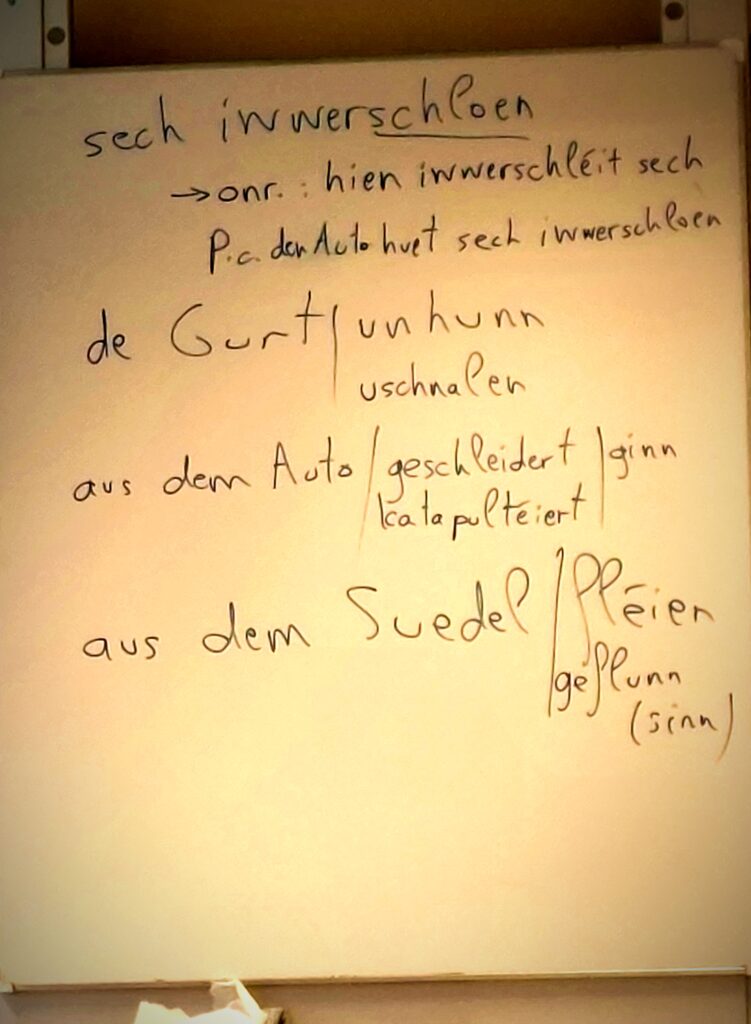 sech iwwerschloen
→ onr. : hien iwwerschléit sech
P.c. den Auto huet sech iwwerschloen
de Gurt / unhunn
uschnalen
aus dem Auto / geschleidert / ginn
katapultéiert
aus dem Suedel / fléien
geflunn
(sinn)